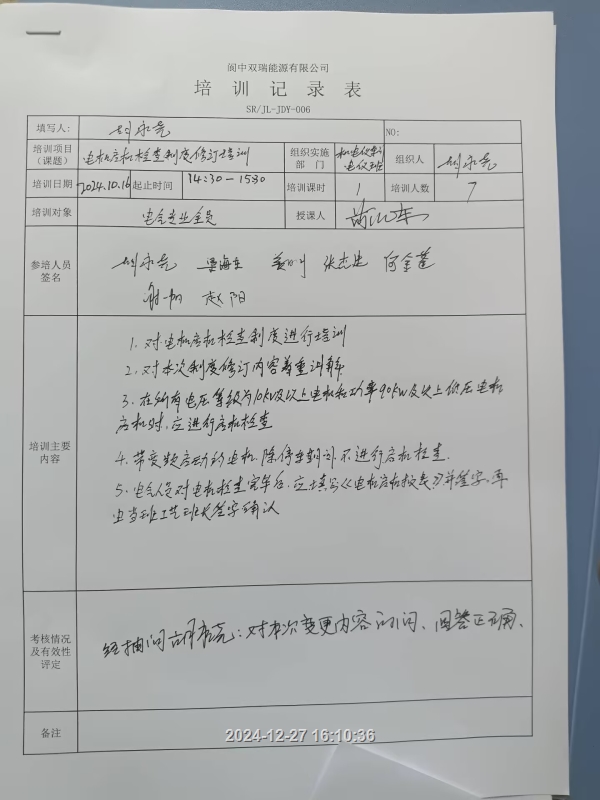 阆中双瑞能源有限公司
培训记录表
SR/JL-JDY-006
填写人: NO:
培训项目（课题） 电机启机检查制度修订培训 组织实施部门 组织人
培训日期 2024.10.16 起止时间 14:30—1530 培训课时 1 培训人数 7
培训对象 电气专业全员 授课人
参培人员签名 张杰忠 何金莲
赵阳
培训主要内容
1. 对电机启机检查制度进行培训
2. 对本次制度修订内容着重讲解
3. 在所有电压等级为10kV及以上电机和功率90kW及以上低压电机
启机时, 应进行启机检查
4. 带变频启动的电机, 除停车期间, 不进行启机检查.
5. 电气人员对电机检查完毕后, 应填写《电机启机报表》并签字, 再
由当班工艺班长签字确认
考核情况及有效性评定 经抽问 : 对本次变更内容 问, 回答正确.
备注
2024-12-27 16:10:36